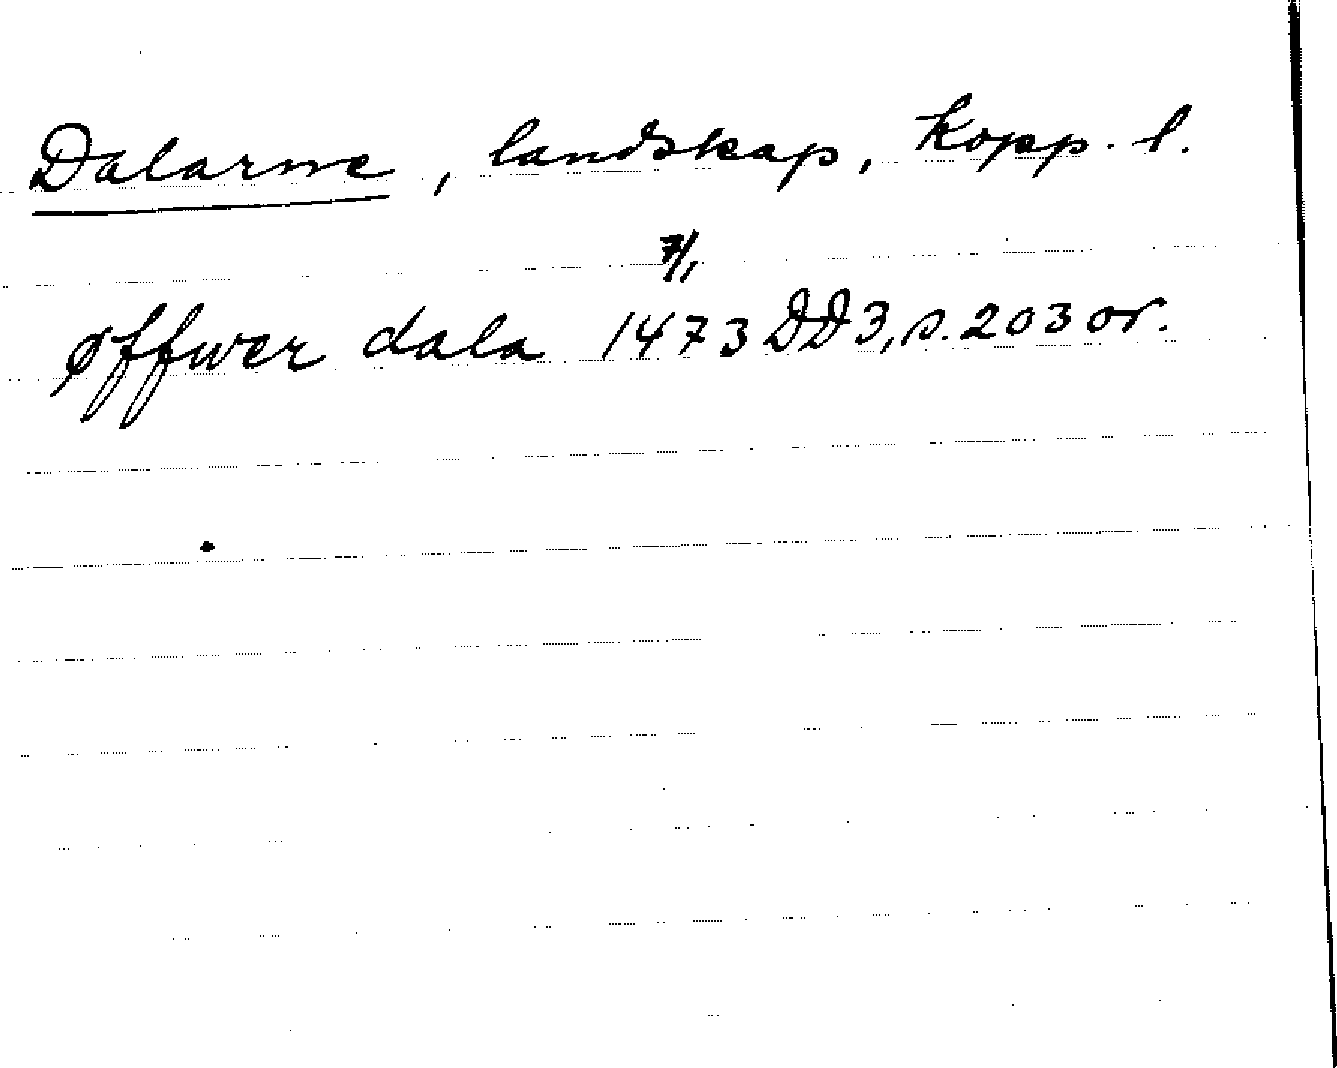 Dalarne, landskap, Kopp. l.
7/1
øffwer dala 1473 DD3, s. 203 or.